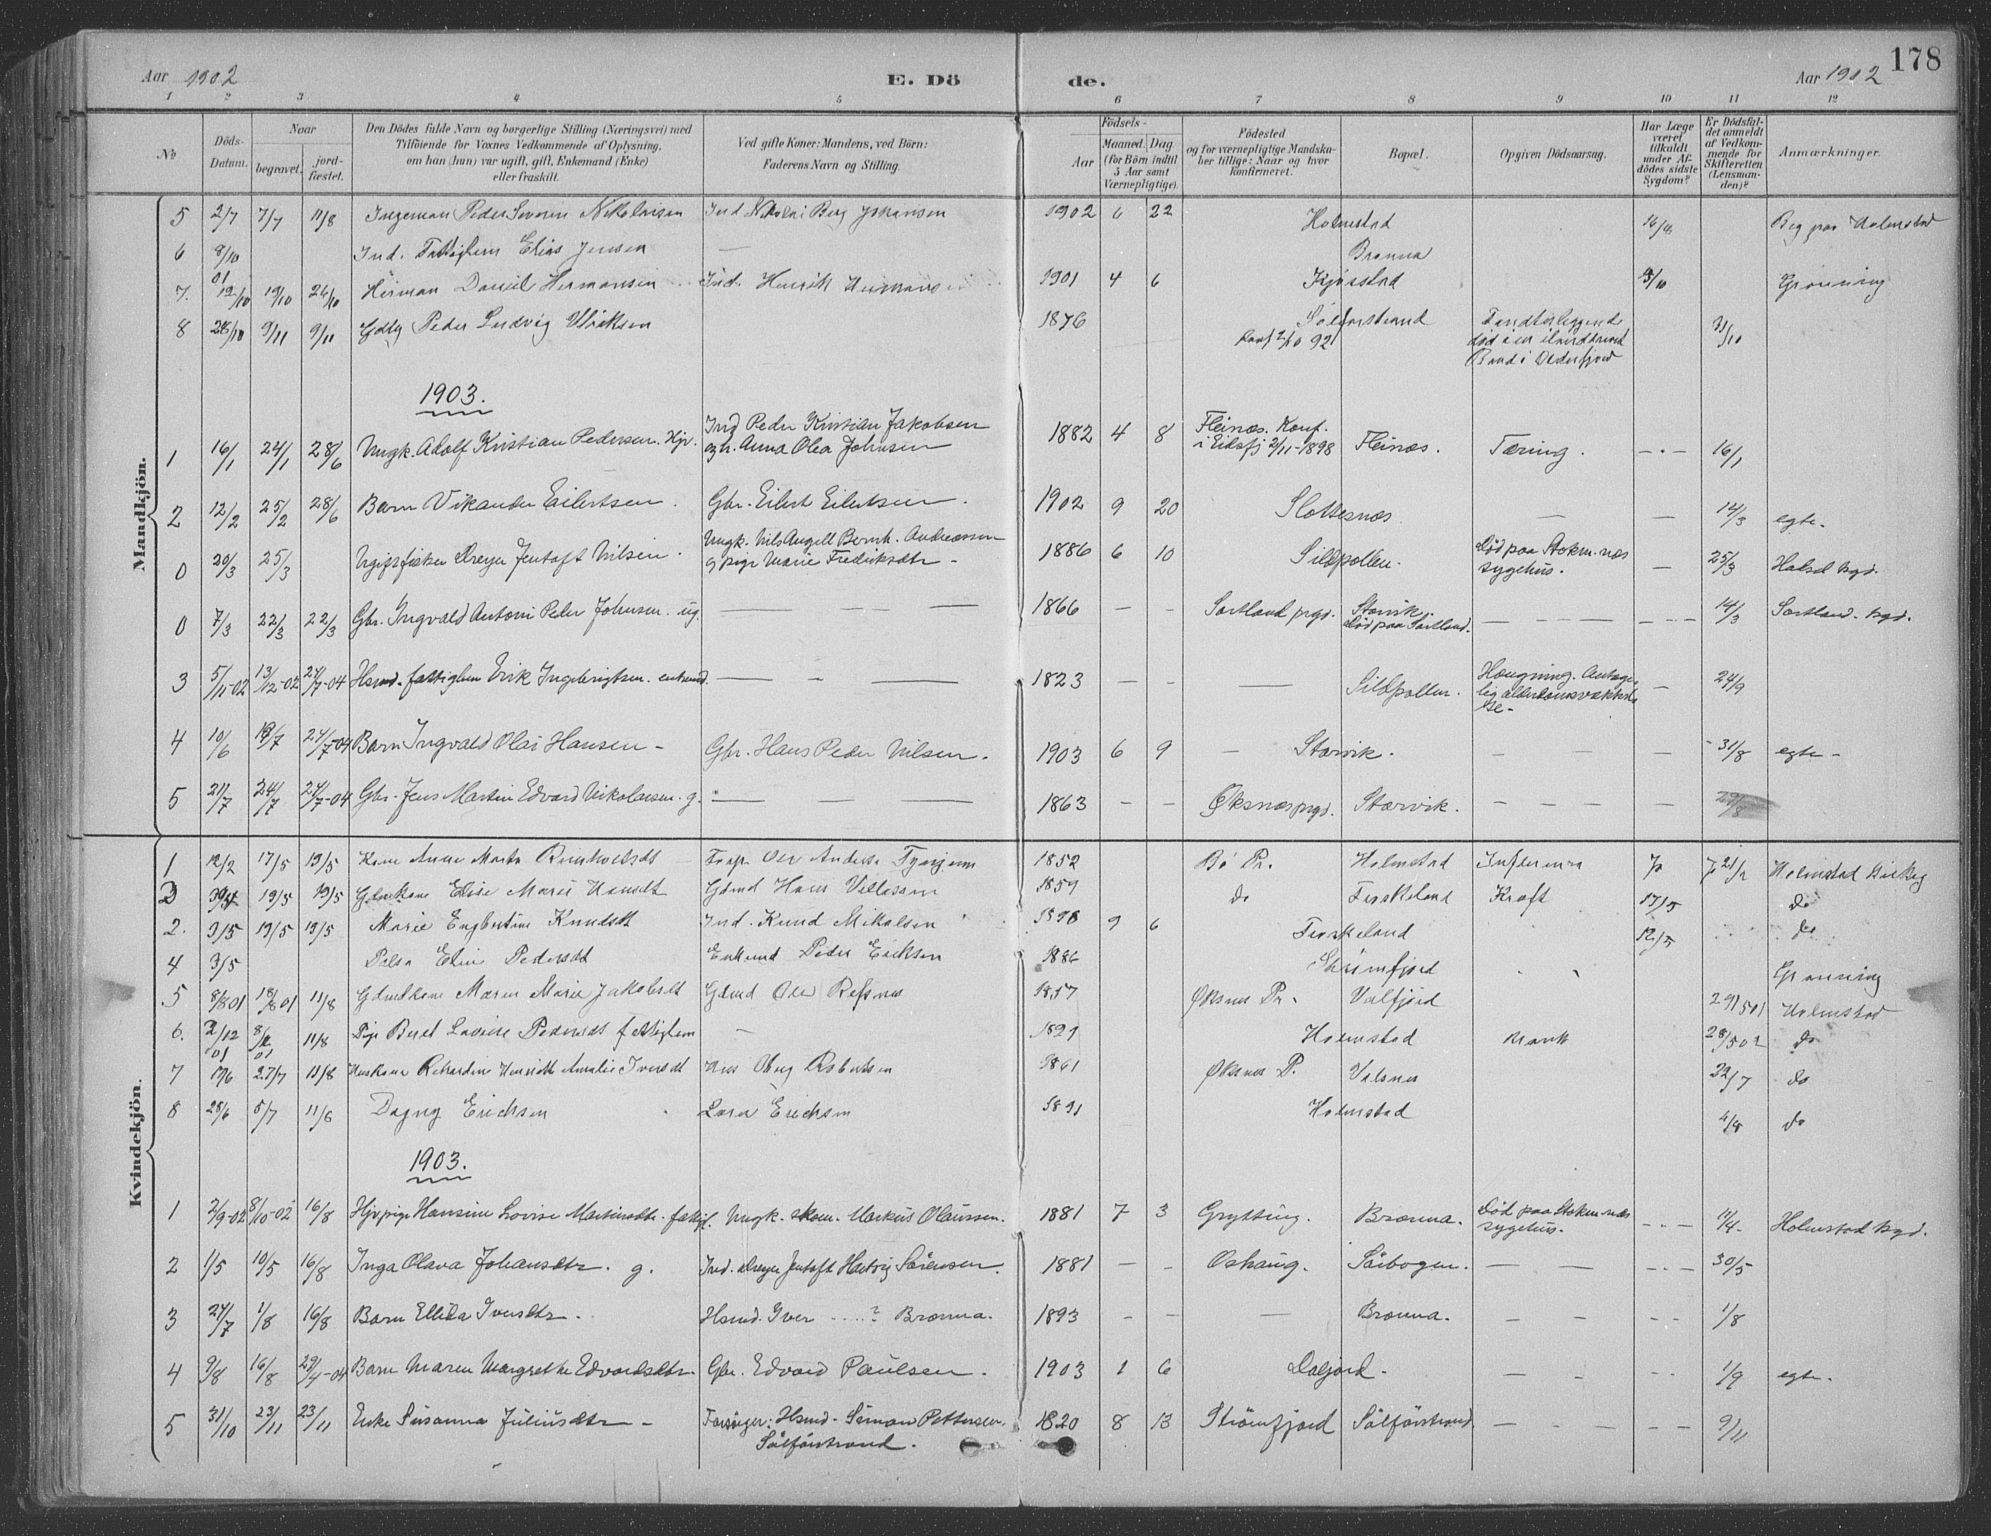 178
Aar 1902 E. Dö de. Aar 1902
1 2 3 4 5 6 7 8 9 10 11 12
No. Döds-Datum. Naar begravet. jord-fæstet.
Den Dödes fulde Navn og borgerlige Stilling (Næringsvei) med
Tilföiende for Voxnes Vedkommende af Oplysning,
om han (hun) var ugift, gift, Enkemand (Enke)
eller fraskilt.
Ved gifte Koner: Mandens, ved Börn:
Faderens Navn og Stilling.
Födsels-
Aar Maaned. Dag
(for Börn indtil
5 Aar samt
Værnepligtige).
Födested
og for værnepligtige Mandska-
ber tillige: Naar og hvor
konfirmeret.
Bopæl.
Opgiven Dödsaarsag.
Har Læge
været
tilkaldt
under Af-
dödes sidste
Sygdom?
Er Dödsfal-
det anmeldt
af Vedkom-
mende for
Skifteretten
(Lensman-
den)?
Anmærkninger.
Mandkjön.
5 2/7 7/7 11/8 Ingeman Peder Nikolaisen Ind Nikolai Berg Johansen 1902 6 22 Holmstad 16/8 Beg paa Holmstad
6 8/10 01 Ind. Elias Jensen — Brønna
7. 12/10 19/10 26/10 Herman Daniel Hermansen Ind. Henrik Hermansen 1901 4 6 Kjørstad /10 Grønning
8 28/10 9/11 9/11 Peder Ludvig Ulriksen 1876 konf 2/10 92 Sølførstrand 31/10
1903.
1 16/1 24/1 28/6 Ungk. Adolf Kristian Pedersen. Hjv. Ind Peder Kristian Jakobsen
og h. Anna Olea Johnsen 1882 4 8 Fleinæs. Konf.
i Eidsfj 2/11-1898 Fleinæs. Tæring. - - - 16/1
2 12/2 25/2 28/6 Barn Vikander Eilertsen. Gbr. Eilert Eilertsen. 1902 9 20 Slottesnæs. — — 14/3 egte.
0 20/3 25/3 Ugift fisker Dreyer Jentoft Nilsen. Ungk. Nils Angell Bernh. Andreassen
og pige Marie Fredriksdtr - 1886 6 10 Sildpollen. Død paa Stokm.næs
sygehus. — 25/3 Hadsel kgd.
0 7/3 22/3 22/3 Gbr. Ingvald Antoni Peder Johnsen. ug. — — — 1866 - - Sortland prgd. Starvik.
Død paa Sortland. - - - - - - 14/3 Sortland. kgd.
3 5/11-02 13/12-02 24/7-04 Hsmd. fattiglem Erik Ingebrigtsen. enkemd. — - — 1823 - - — Sildpollen. Hængning. - 24/9
4 10/6 19/7 24/7-04 Barn Ingvald Olai Hansen - Gbr. Hans Peder Nilsen. 1903 6 9 - Starvik. - - - 31/8 egte -
5 21/7 24/7 24/7-04 Gbr. Jens Martin Edvard Nikolaisen. g. — — — 1863 - - Øksnæs prgd. Starvik. - - - - 29/8
Kvindekjön.
1 12/2 17/5 19/5 Kone Anne Marta 1852 Bø Pr. Holmstad Influensa Holmstad
3/4 19/5 19/5 Gdmkone Elise Marie Hansdt Gdmd Hans 1859 do Frøskeland Kræft 17/5 do
2. 3/5 19/5 19/5 Marie Engbertine Knudsdt Ind. Knud Mikalsen 1898 9 6 Frøskeland 12/5 do
4 3/5 Elin Pedersdt Enkemd Peder Eriksen 1886 Strømfjord Grønning
5 8/8 01 18/8 01 11/8 Gdmkone Maren Marie Jakobsdt Gdmd Ole Refsnes 1857 Øksnes Pr. Valfjord Holmstad
6. 2/12 01 11/8 Pige Beret Lovise Pedersdt fattiglem — 1829 Holmstad do
7 19/6 27/7 11/8 Huskone Rikardine Henriette Amalie Iversdt Robertsen 1861 Øksnes P. Valsnes 22/7 do
8 28/6 5/7 11/8 Dagny Erichsen Lars Erichsen 1891 Holmstad 4/8 do
1903.
1 2/9-02 8/10-02 16/8 Hjvpige Hansine Lovise Martinsdtr. fattigl. Ungk. skom. Markus Olaussen. 1881 7 3 Grytting. Brønna. Død paa Stokm.næs
sygehus. - - - 11/4 - Holmstad kgd.
2 1/5 10/5 16/8 Inga Olava Johansdtr. g. Ind. Dreyer Jentoft Hartvig Sørensen. 1881 - - Oshaug. Sørbogen. — — - - - 30/5
3 24/7 1/8 16/8 Barn Ellida Iversdtr. Hsmd. Iver ....? Brønna. 1893 - - — Brønna. - - - - 1/8
4 9/8 16/8 29/4-04 Barn Maren Margrethe Edvardsdtr. Gbr. Edvard Paulsen. 1903 1 6 Daljord. - - - - 1/9 egte.
5 31/10 23/11 23/11 Enke Susanna Juliusdtr - Forsørger: Hsmd. Simon Pettersen.
Sølførstrand. 1820 8 13 Strømfjord Sølførstrand - - - - 9/11